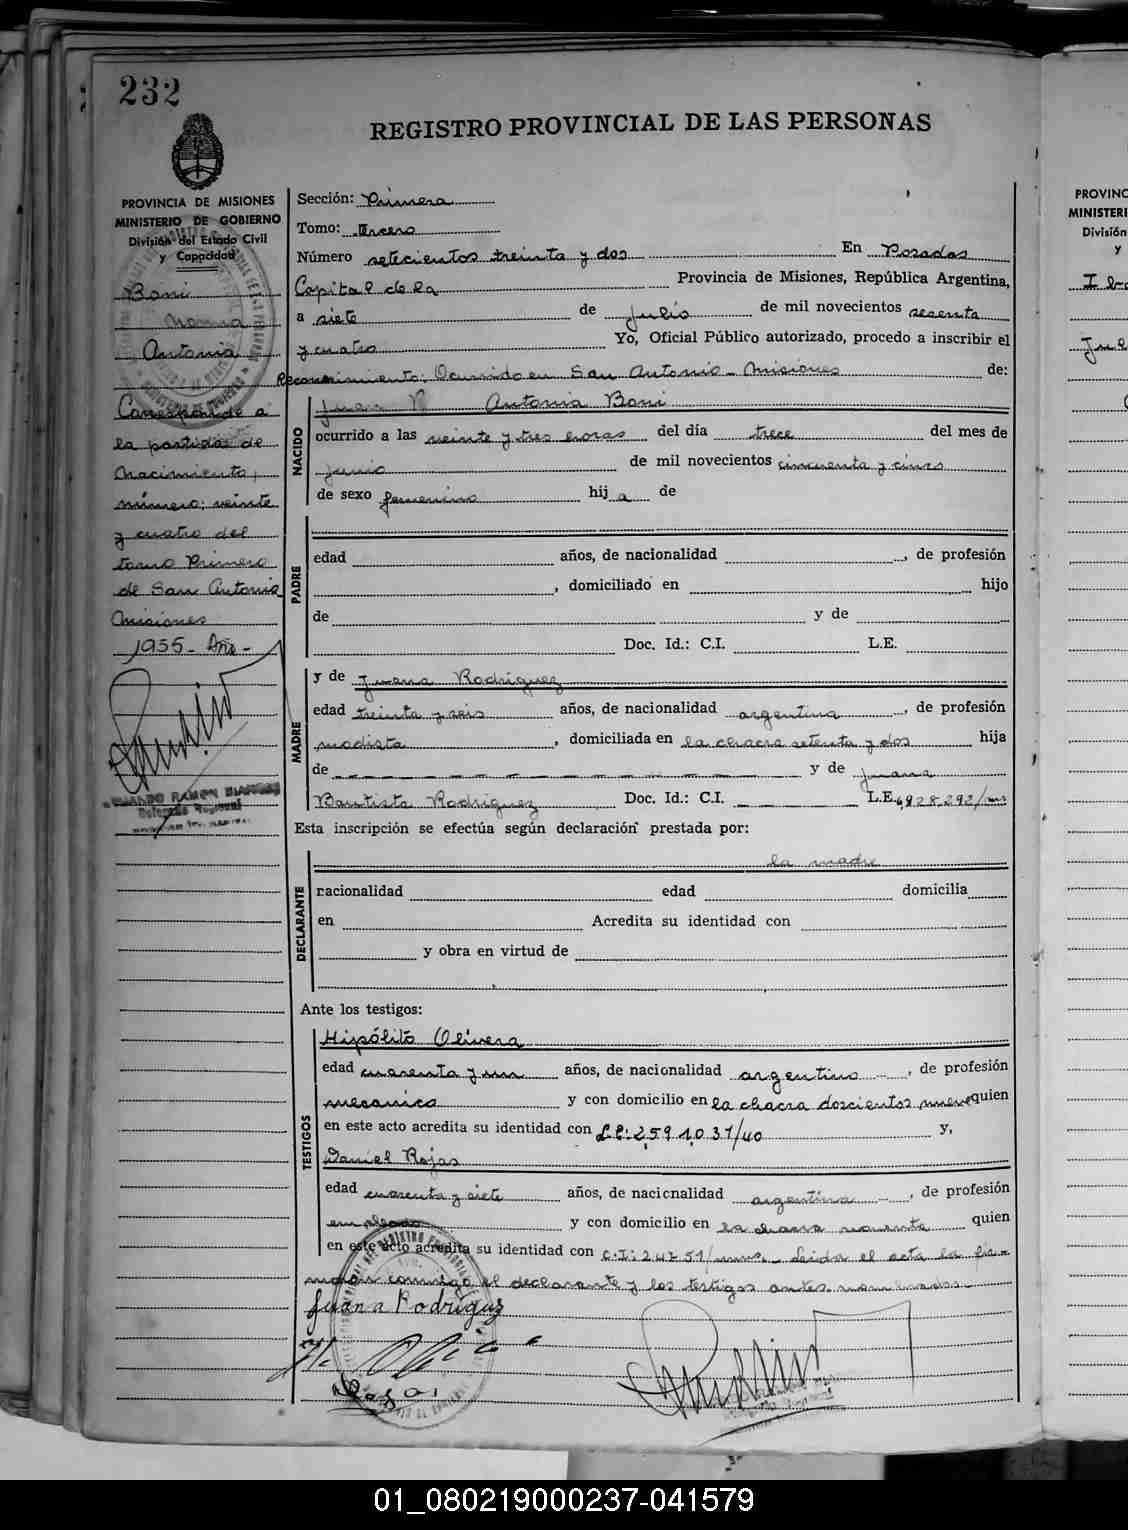 232
REGISTRO PROVINCIAL DE LAS PERSONAS
PROVINCIA DE MISIONES
MINISTERIO DE GOBIERNO
División del Estado Civil
y Capacidad
Boni
Norma
Antonia
Corresponde a
la partida de
Nacimiento,
número: veinte
y cuatro del
tomo Primero
de San Antonio
Misiones
1955- Año-
RAMON
Delegado Regional
Sección: Primera
Tomo: Tercero
Número setecientos treinta y dos En Posadas
Capital de la Provincia de Misiones, República Argentina,
a siete de Julio de mil novecientos sesenta
y cuatro Yo, Oficial Público autorizado, procedo a inscribir el
Reconocimiento: Ocurrido en San Antonio - Misiones de:
NACIDO
Antonia Boni
ocurrido a las veinte y tres horas del día trece del mes de
Junio de mil novecientos cincuenta y cinco
de sexo femenino hija de
PADRE
edad años, de nacionalidad , de profesión
, domiciliado en hijo
de y de
Doc. Id.: C.I. L.E.
MADRE
y de Juana Rodriguez
edad treinta y seis años, de nacionalidad argentina , de profesión
modista , domiciliada en la chacra setenta y dos hija
de y de Juana
Bautista Rodriguez Doc. Id.: C.I. L.E. 6,928,292/
Esta inscripción se efectúa según declaración prestada por:
DECLARANTE
la madre
racionalidad edad domicilia
en Acredita su identidad con
y obra en virtud de
Ante los testigos:
TESTIGOS
Hipólito Olivera
edad cuarenta y un años, de nacionalidad argentino , de profesión
mecánico y con domicilio en la chacra doscientos nueve quien
en este acto acredita su identidad con L E: 2,591,031/40 y,
Daniel Rojas
edad cuarenta y siete años, de nacicnalidad argentina , de profesión
empleado y con domicilio en la chacra noventa quien
en este acto acredita su identidad con C.I: 24751/ Leida el acta la fir-
maron conmigo el declarante y los testigos antes nombrados.
Juana Rodriguez
PROVINC
MINISTERI
División
y
01_080219000237-041579